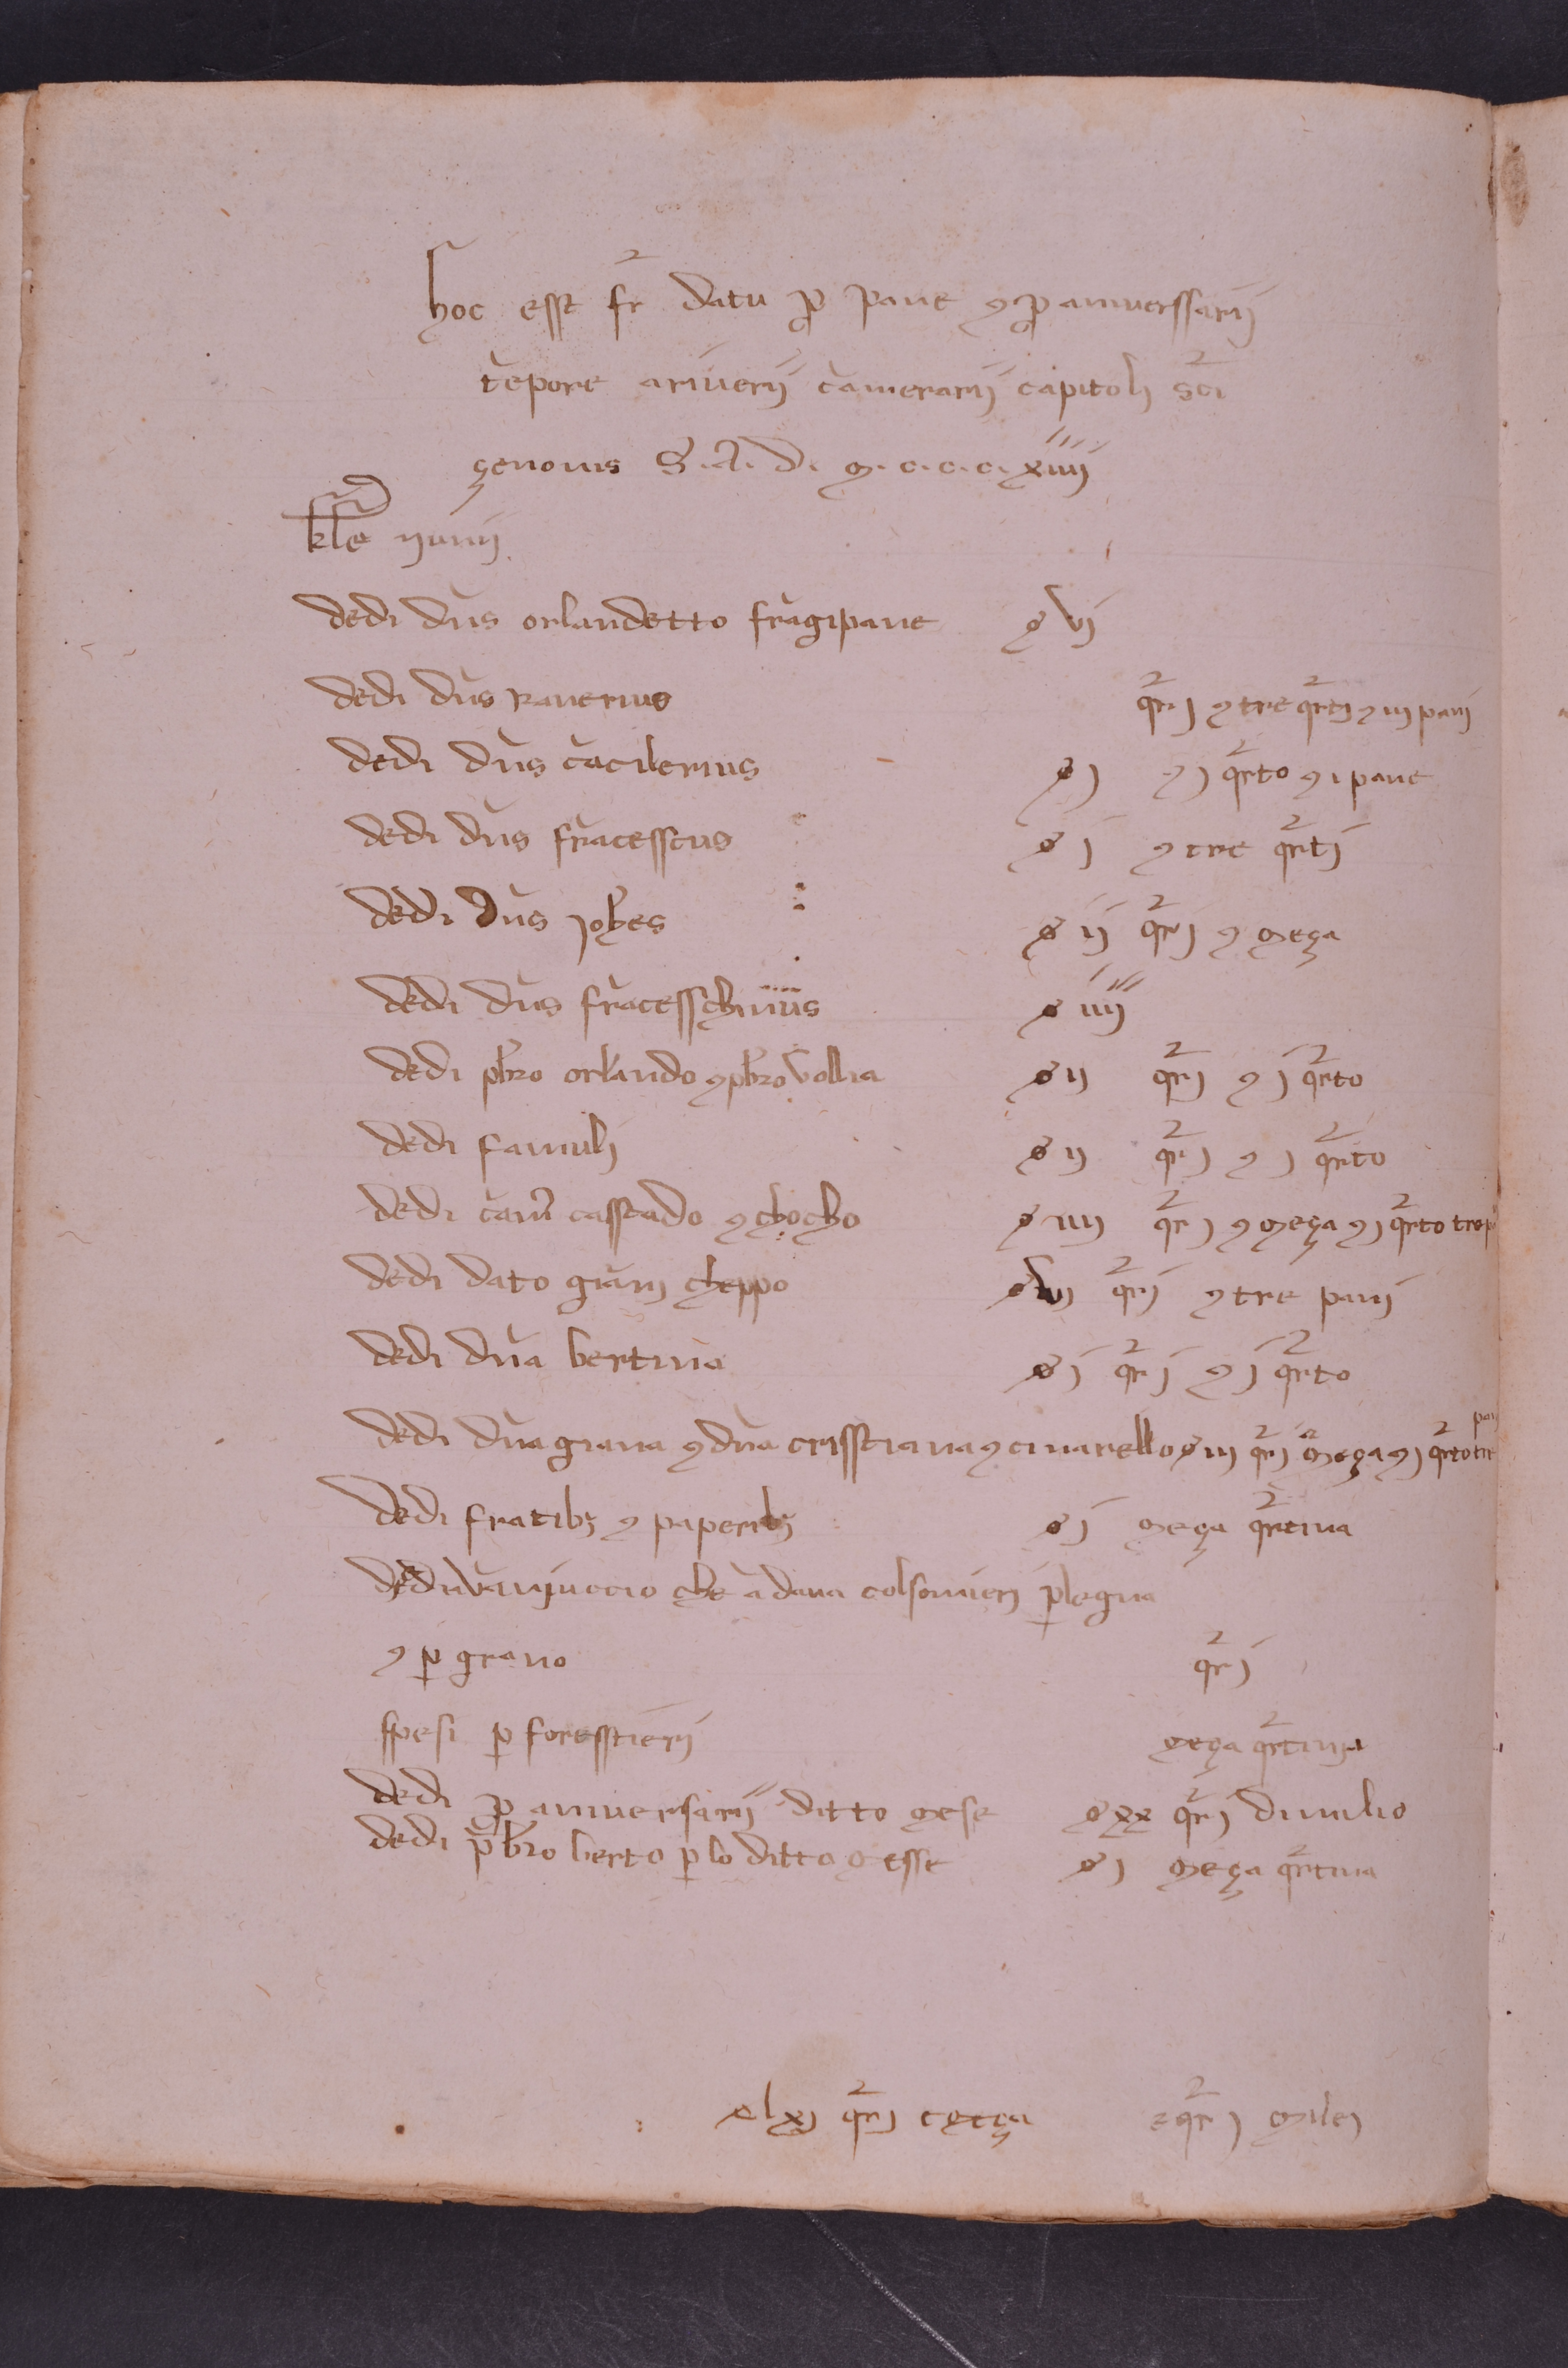 hoc esst fr datu p pane ꝫ p aniverssarij
tēpore ariverij camerarij capitolj sci
çenonis S. A. D. M. c. c. c. c. xiiij
kle junij
dedi dn̄s orlandetto fragipane ꝋ vj
dedi dn̄s ranerius qrj ꝫ tre qrtj ꝫ iij panj
dedi dn̄s cācilerius ꝋ j ꝫ j qrto ꝫ i pane
dedi dn̄s frācesscus ꝋ j ꝫ tre qrtj
dedi dn̄s johes ꝋ ij qrj ꝫ meça
dedi dn̄s frācesschinus ꝋ iiij
dedi pbro orlando ꝫ pbro vollia ꝋ ij qrj ꝫ j qrto
dedi famulj ꝋ ij qrj ꝫ j qrto
dedi cam casstado ꝫ chocho ꝋ iiij qrj ꝫ meça ꝫ j qrto
dedi dato gianj cheppo ꝋ vij qrj ꝫ tre panj
dedi dn̄a bertina ꝋ j qrj ꝫ j qrto
dedi dn̄a giana ꝫ dn̄a crisstiana ꝫ cinarello ꝋ iij qrj meça ꝫ j qrto
dedi fratibꝫ ꝫ paperibꝫ ꝋ j meça qrtina
dedi vanjuccio che ādava colsomierj p legna
ꝫ p grano qrj
spesi p foresstierj meça qrtina
dedi p aniversarij ditto mese ꝋ xx qrj di milio
dedi pbro berto p lo ditto messe ꝋ j meça qrtina
ꝋ lxj qrj e qrj